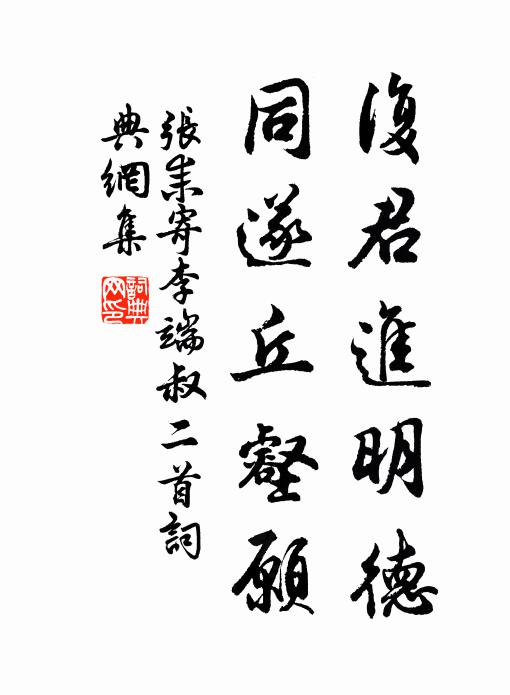 復君進明德
同遂丘壑願
張耒寄李端叔二首詞
典網集
詞典
网印